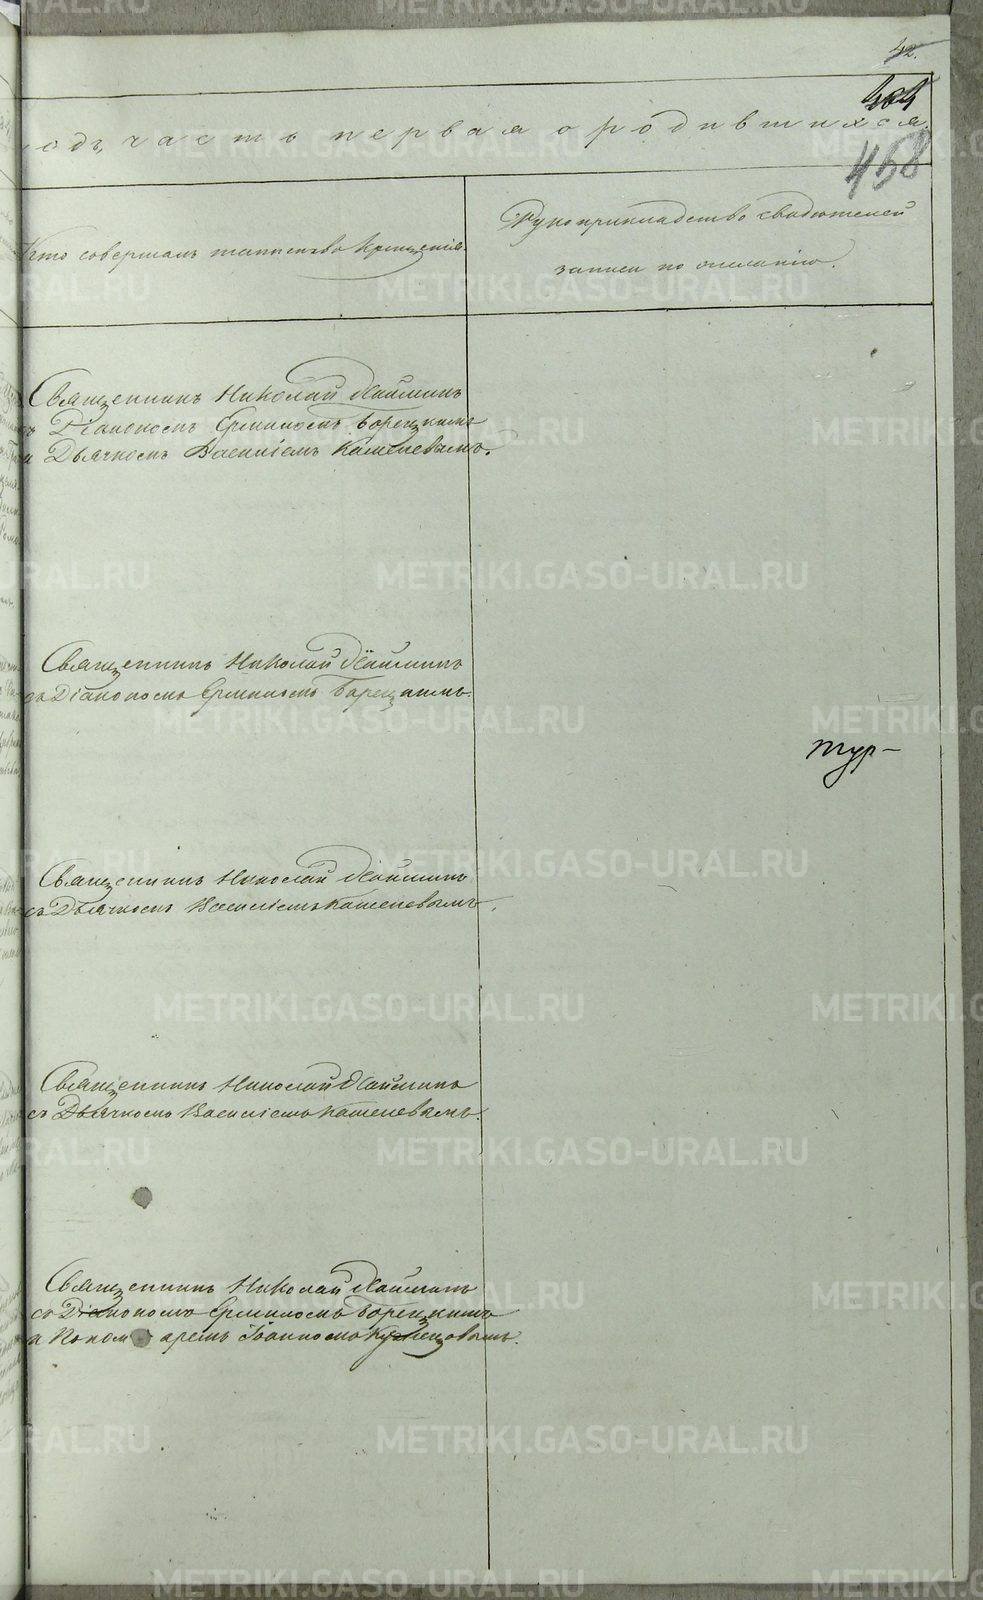 42.
458
одъ, часть первая о родившихся.
Кто совершалъ таинство крещенія.
Рукоприкладство свидѣтелей
записи по желанію.
Священникъ Николай
съ Діакономъ Ермиломъ Борецкимъ
и Дьячкомъ Василіемъ Кашеневымъ.
Священникъ Николай
съ Діакономъ Ермиломъ Борецкимъ.
тур-
Священникъ Николай
съ Дьячкомъ Василіемъ Кашеневымъ.
Священникъ Николай
съ Дьячкомъ Василіемъ Кашеневымъ.
Священникъ Николай
съ Діакономъ Ермиломъ Борецкимъ
и Поном аремъ Іоанномъ Кузнецовымъ.
METRIKI.GASO-URAL.RU